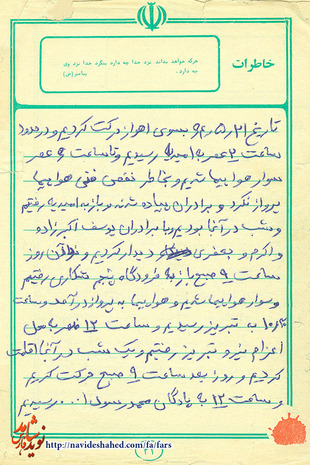 خاطرات
هرکه خواهد بداند نزد خدا چه دارد بنگرد خدا نزد وی
چه دارد.
پیامبر(ص)
تاریخ ۲۱ر۵ر بسوی اهواز حرکت کردیم و در حدود
ساعت ۲ عصر به امیدیه رسیدیم و تا ساعت ۶ عصر
سوار هواپیما شدیم و بخاطر نقص فنی هواپیما
پرواز نکرد و برادران پیاده شدند و باز به امیدیه رفتیم
و شب در آنجا بودیم و با برادران یوسف اکبرزاده
و اکرم و جعفری دیدار کردیم و روز
ساعت ۹ صبح باز به فرودگاه پنجم شکاری رفتیم
و سوار هواپیما شدیم و هواپیما به پرواز در آمد و ساعت
به تبریز رسیدیم و ساعت ۱۲ ظهر به محل
اعزام نیرو تبریز رفتیم و یک شب در آنجا اقامت
کردیم و روز بعد ساعت ۹ صبح حرکت کردیم
و ساعت ۱۲ به پادگان محمد رسول ا... رسیدیم
نوید شاهد
http://navideshahed.com/fa/fars
۲۱